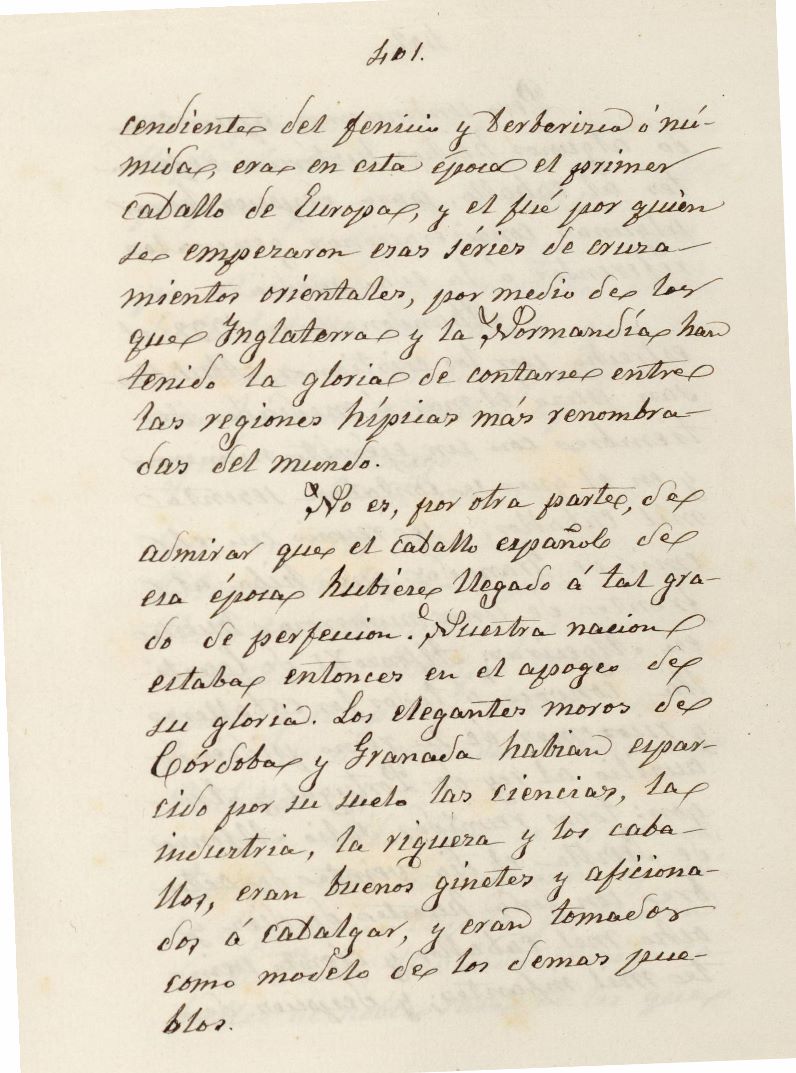 401.
cendiente del fenicio y berberisco ó nú-
mida, era en esta época el primer
caballo de Europa, y el fué por quien
se empezaron esas séries de cruza-
mientos orientales, por medio de los
que Inglaterra y la Normandía han
tenido la gloria de contarse entre
las regiones hípicas más renombra-
das del mundo.
No es, por otra parte, de
admirar que el caballo español de
esa época hubiese llegado á tal gra-
do de perfeccion. Nuestra nacion
estaba entonces en el apogeo de
su gloria. Los elegantes moros de
Córdoba y Granada habian espar-
cido por su suelo las ciencias, la
industria, la riqueza y los caba-
llos, eran buenos ginetes y aficiona-
dos á cabalgar, y eran tomados
como modelo de los demas pue-
blos.